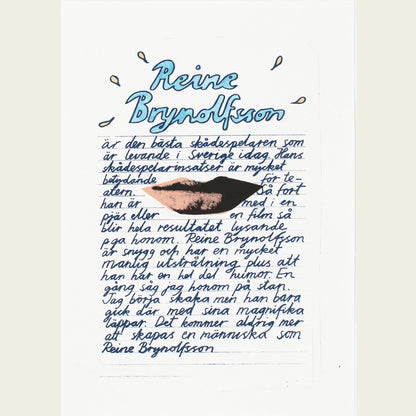 Reine
Brynolfsson
är den bästa skådespelaren som
är levande i Sverige idag. Hans
skådespelarinsatser är mycket
betydande för te-
atern. Så fort
han är med i en
pjäs eller en film så
blir hela resultatet lysande
pga honom. Reine Brynolfsson
är snygg och har en mycket
manlig utstrålning plus att
han har en hel del humor. En
gång såg jag honom på stan.
Jag börja skaka men han bara
gick där med sina magnifika
läppar. Det kommer aldrig mer
att skapas en människa som
Reine Brynolfsson